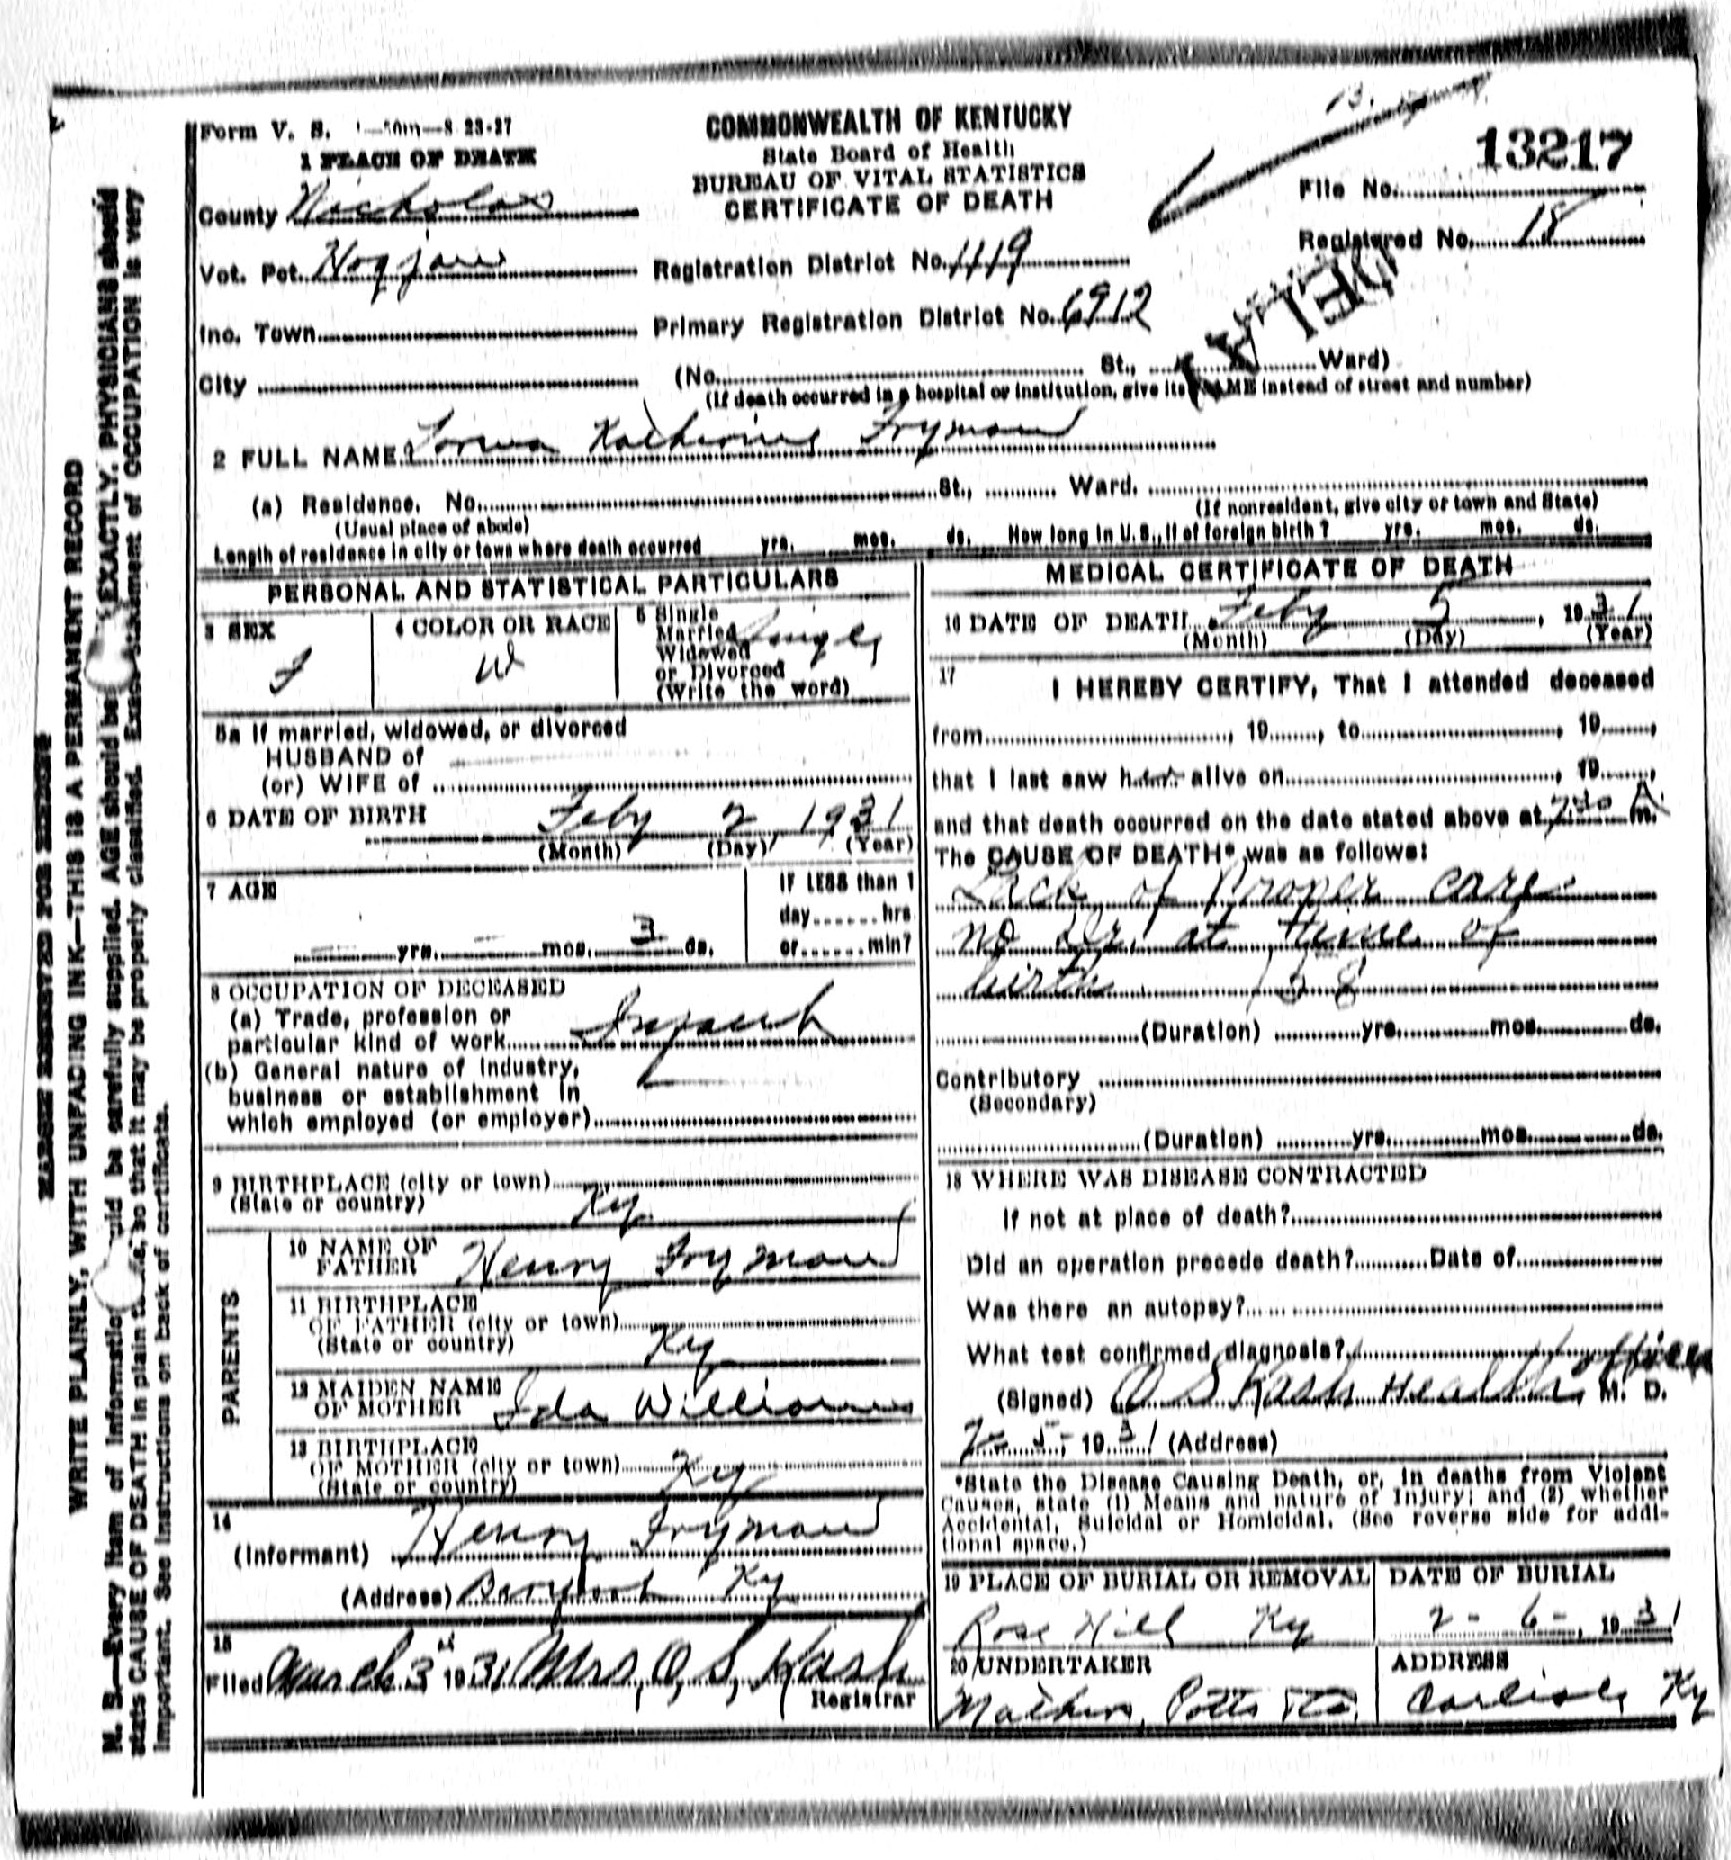 COMMONWEALTH OF KENTUCKY
State Board of Health
BUREAU OF VITAL STATISTICS
CERTIFICATE OF DEATH
Form V. S.
1 PLACE OF DEATH
County Nicholas
Vot. Pct. Hogjaw
Inc. Town
City
Registration District No. 1119
Primary Registration District No. 6912
(No. St., Ward)
(If death occurred in a hospital or institution, give its NAME instead of street and number)
File No. 13217
Registered No. 18
DELAY
2 FULL NAME Katherine Fryman
(a) Residence. No. St., Ward.
(Usual place of abode)
(If nonresident, give city or town and State)
Length of residence in city or town where death occurred yrs. mos. ds. How long in U. S., if of foreign birth? yrs. mos. ds.
PERSONAL AND STATISTICAL PARTICULARS
3 SEX
f
4 COLOR OR RACE
W
5 Single
Married
Widowed
or Divorced
(Write the word)
Single
5a If married, widowed, or divorced
HUSBAND of
(or) WIFE of
6 DATE OF BIRTH Feby 2, 1931
(Month) (Day) (Year)
7 AGE
yrs. mos. 3 ds.
IF LESS than 1
day hrs
or min?
8 OCCUPATION OF DECEASED
(a) Trade, profession or
particular kind of work Infant
(b) General nature of industry,
business or establishment in
which employed (or employer)
9 BIRTHPLACE (city or town)
(State or country) Ky
PARENTS
10 NAME OF
FATHER Henry Fryman
11 BIRTHPLACE
OF FATHER (city or town)
(State or country) Ky
12 MAIDEN NAME
OF MOTHER Ida Williams
13 BIRTHPLACE
OF MOTHER (city or town)
(State or country) Ky
14
(Informant) Henry Fryman
(Address) Ky
15
Filed March 3 1931 Mrs. O. S. Kash
Registrar
MEDICAL CERTIFICATE OF DEATH
16 DATE OF DEATH Feby 5, 1931
(Month) (Day) (Year)
17
I HEREBY CERTIFY, That I attended deceased
from, 19, to, 19,
that I last saw h alive on, 19,
and that death occurred on the date stated above at 7 A m.
The CAUSE OF DEATH* was as follows:
Lack of Proper care
no Dr. at time of
birth 158
(Duration) yrs. mos. ds.
Contributory
(Secondary)
(Duration) yrs. mos. ds.
18 WHERE WAS DISEASE CONTRACTED
If not at place of death?
Did an operation precede death? Date of
Was there an autopsy?
What test confirmed diagnosis?
(Signed) O S Kash Health Officer M. D.
2-5-, 1931 (Address)
*State the Disease Causing Death, or, in deaths from Violent
Causes, state (1) Means and nature of Injury; and (2) whether
Accidental, Suicidal or Homicidal. (See reverse side for addi-
tional space.)
19 PLACE OF BURIAL OR REMOVAL
Rose Hill Ky
DATE OF BURIAL
2-6-, 1931
20 UNDERTAKER
Mathers, Potts & Co.
ADDRESS
Carlisle Ky
MARGIN RESERVED FOR BINDING
WRITE PLAINLY, WITH UNFADING INK—THIS IS A PERMANENT RECORD
N. B.—Every item of information should be carefully supplied. AGE should be EXACTLY. PHYSICIANS should
state CAUSE OF DEATH in plain, so that it may be properly classified. Exact statement of OCCUPATION is very
important. See instructions on back of certificate.